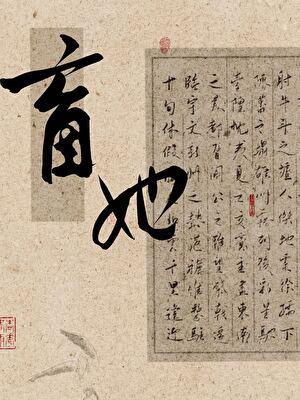 育她
射牛斗之墟人傑地靈徐孺下
陳蕃之榻雄州霧列俊彩星馳
臺隍枕夷夏之交賓主盡東南
之美都督閻公之雅望棨戟遙
臨宇文新州之懿範襜帷暫駐
十旬休假雲千里逢迎